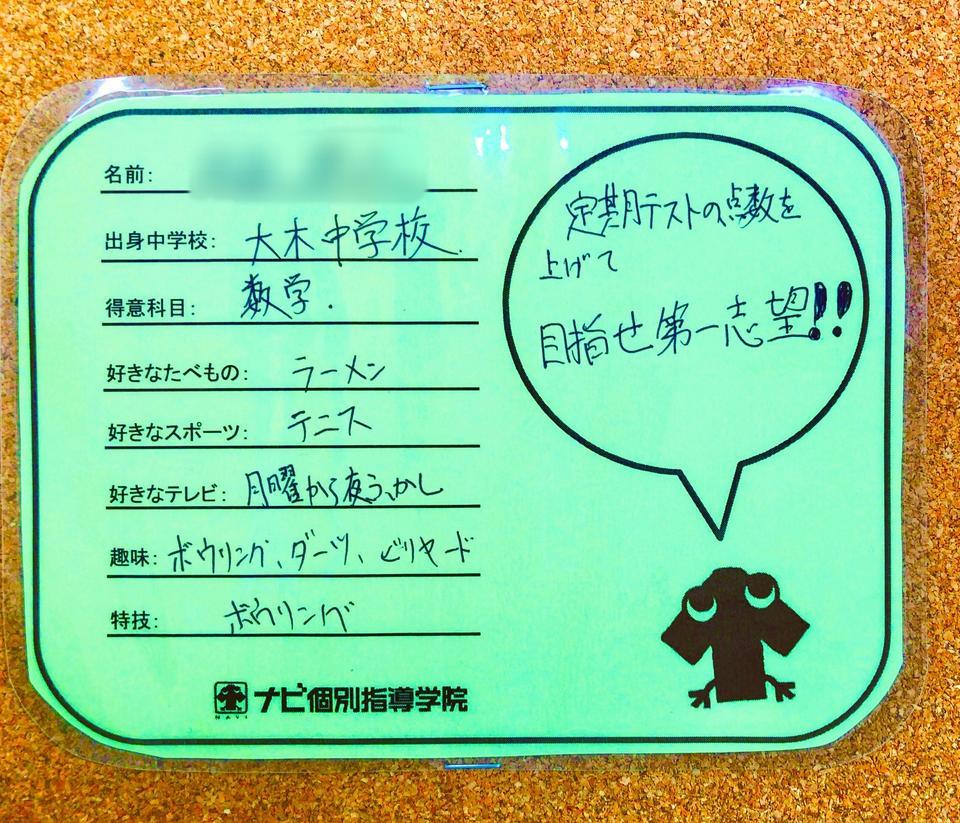 名前:
出身中学校: 大木中学校.
得意科目: 数学.
好きなたべもの: ラーメン
好きなスポーツ: テニス
好きなテレビ: 月曜から夜ふかし
趣味: ボウリング、ダーツ、ビリヤード
特技: ボウリング
NAVI ナビ個別指導学院
定期テストの点数を
上げて
目指せ第一志望!!